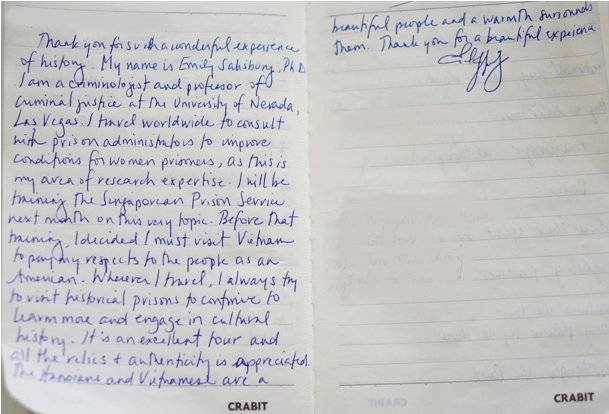 Thank you for such a wonderful experience
of history. My name is Emily Salisbury, Ph.D
I am a criminologist and professor of
criminal justice at the University of Nevada,
Las Vegas. I travel worldwide to consult
with prison administrators to improve
conditions for women prisoners, as this is
my area of research expertise. I will be
training the Singaporean Prison Service
next month on this very topic. Before that
training, I decided I must visit Vietnam
to pay my respects to the people as an
American. Wherever I travel, I always try
to visit historical prisons to continue to
learn more and engage in cultural
history. It is an excellent tour and
all the relics + authenticity is appreciated.
The Hanoians and Vietnamese are a
CRABIT
beautiful people and a warmth surrounds
them. Thank you for a beautiful experience
CRABIT